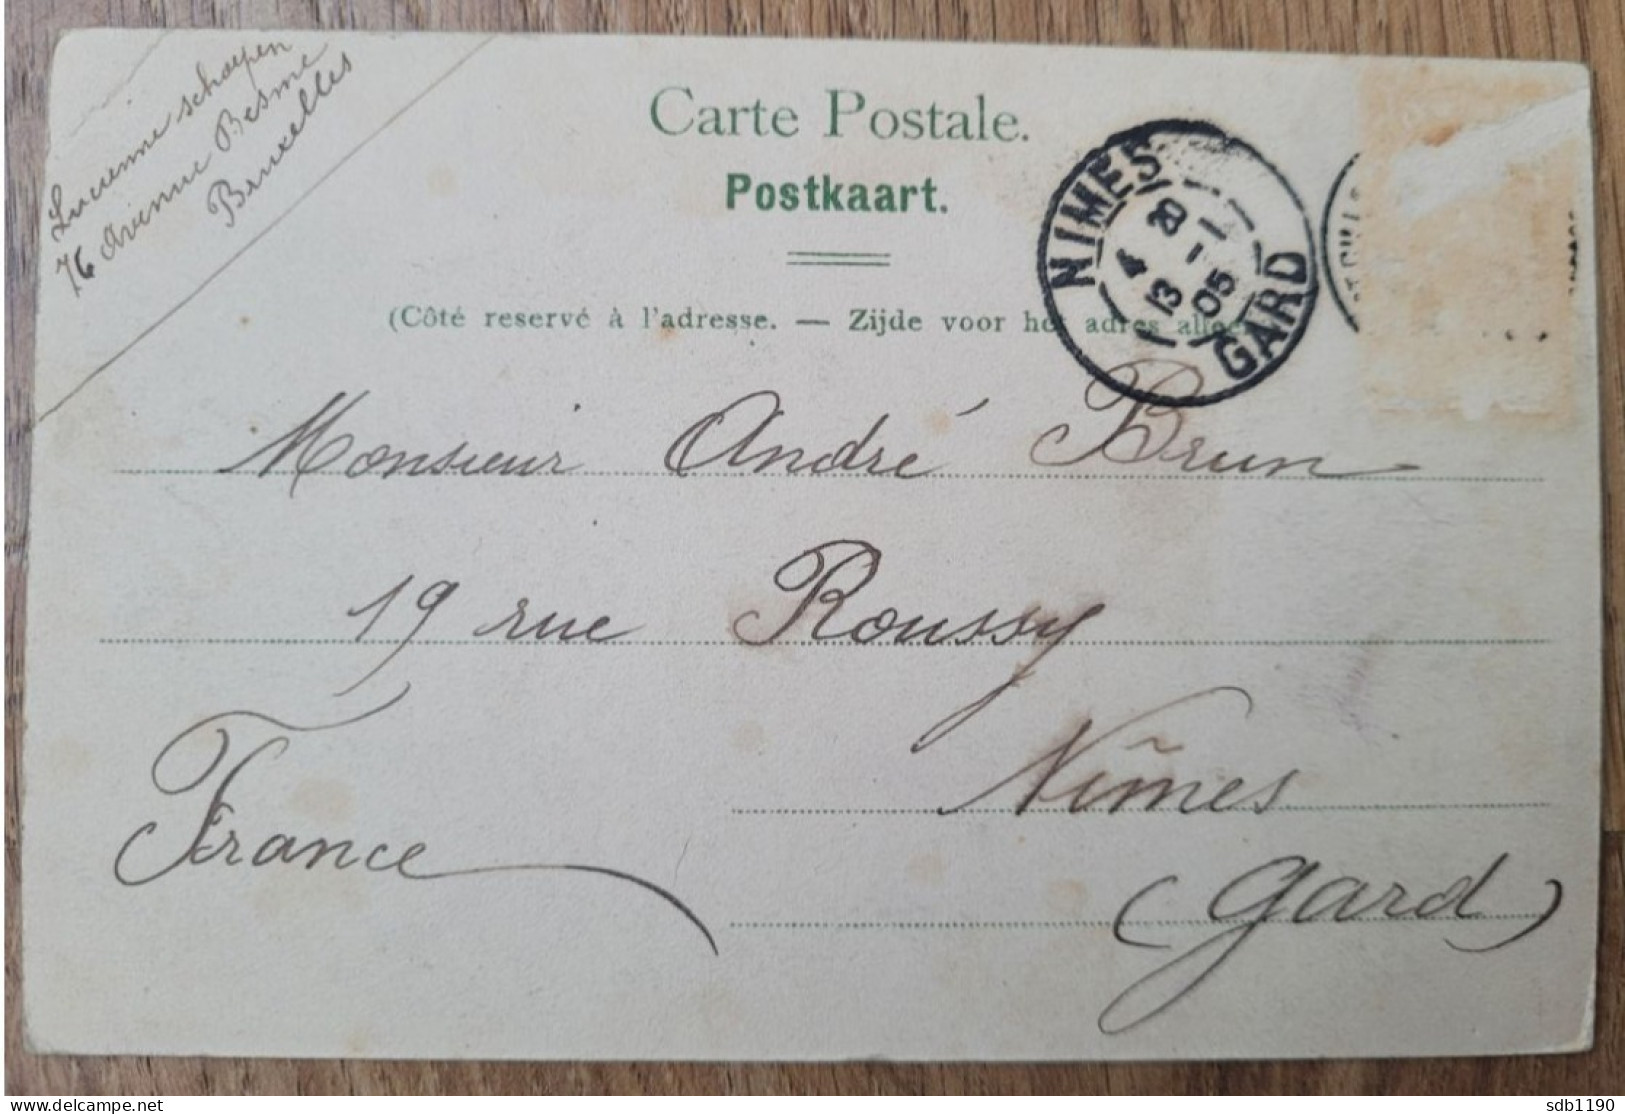 Lucienne schoepen
76 Avenue Besme
Bruxelles
Carte Postale.
Postkaart.
(Côté reservé à l'adresse. — Zijde voor het adres
NIMES
4 20
13 -1
05
GARD
Monsieur André Brun
19 rue Roussy
Nîmes
France
(Gard)
delcampe.net
sdb1190